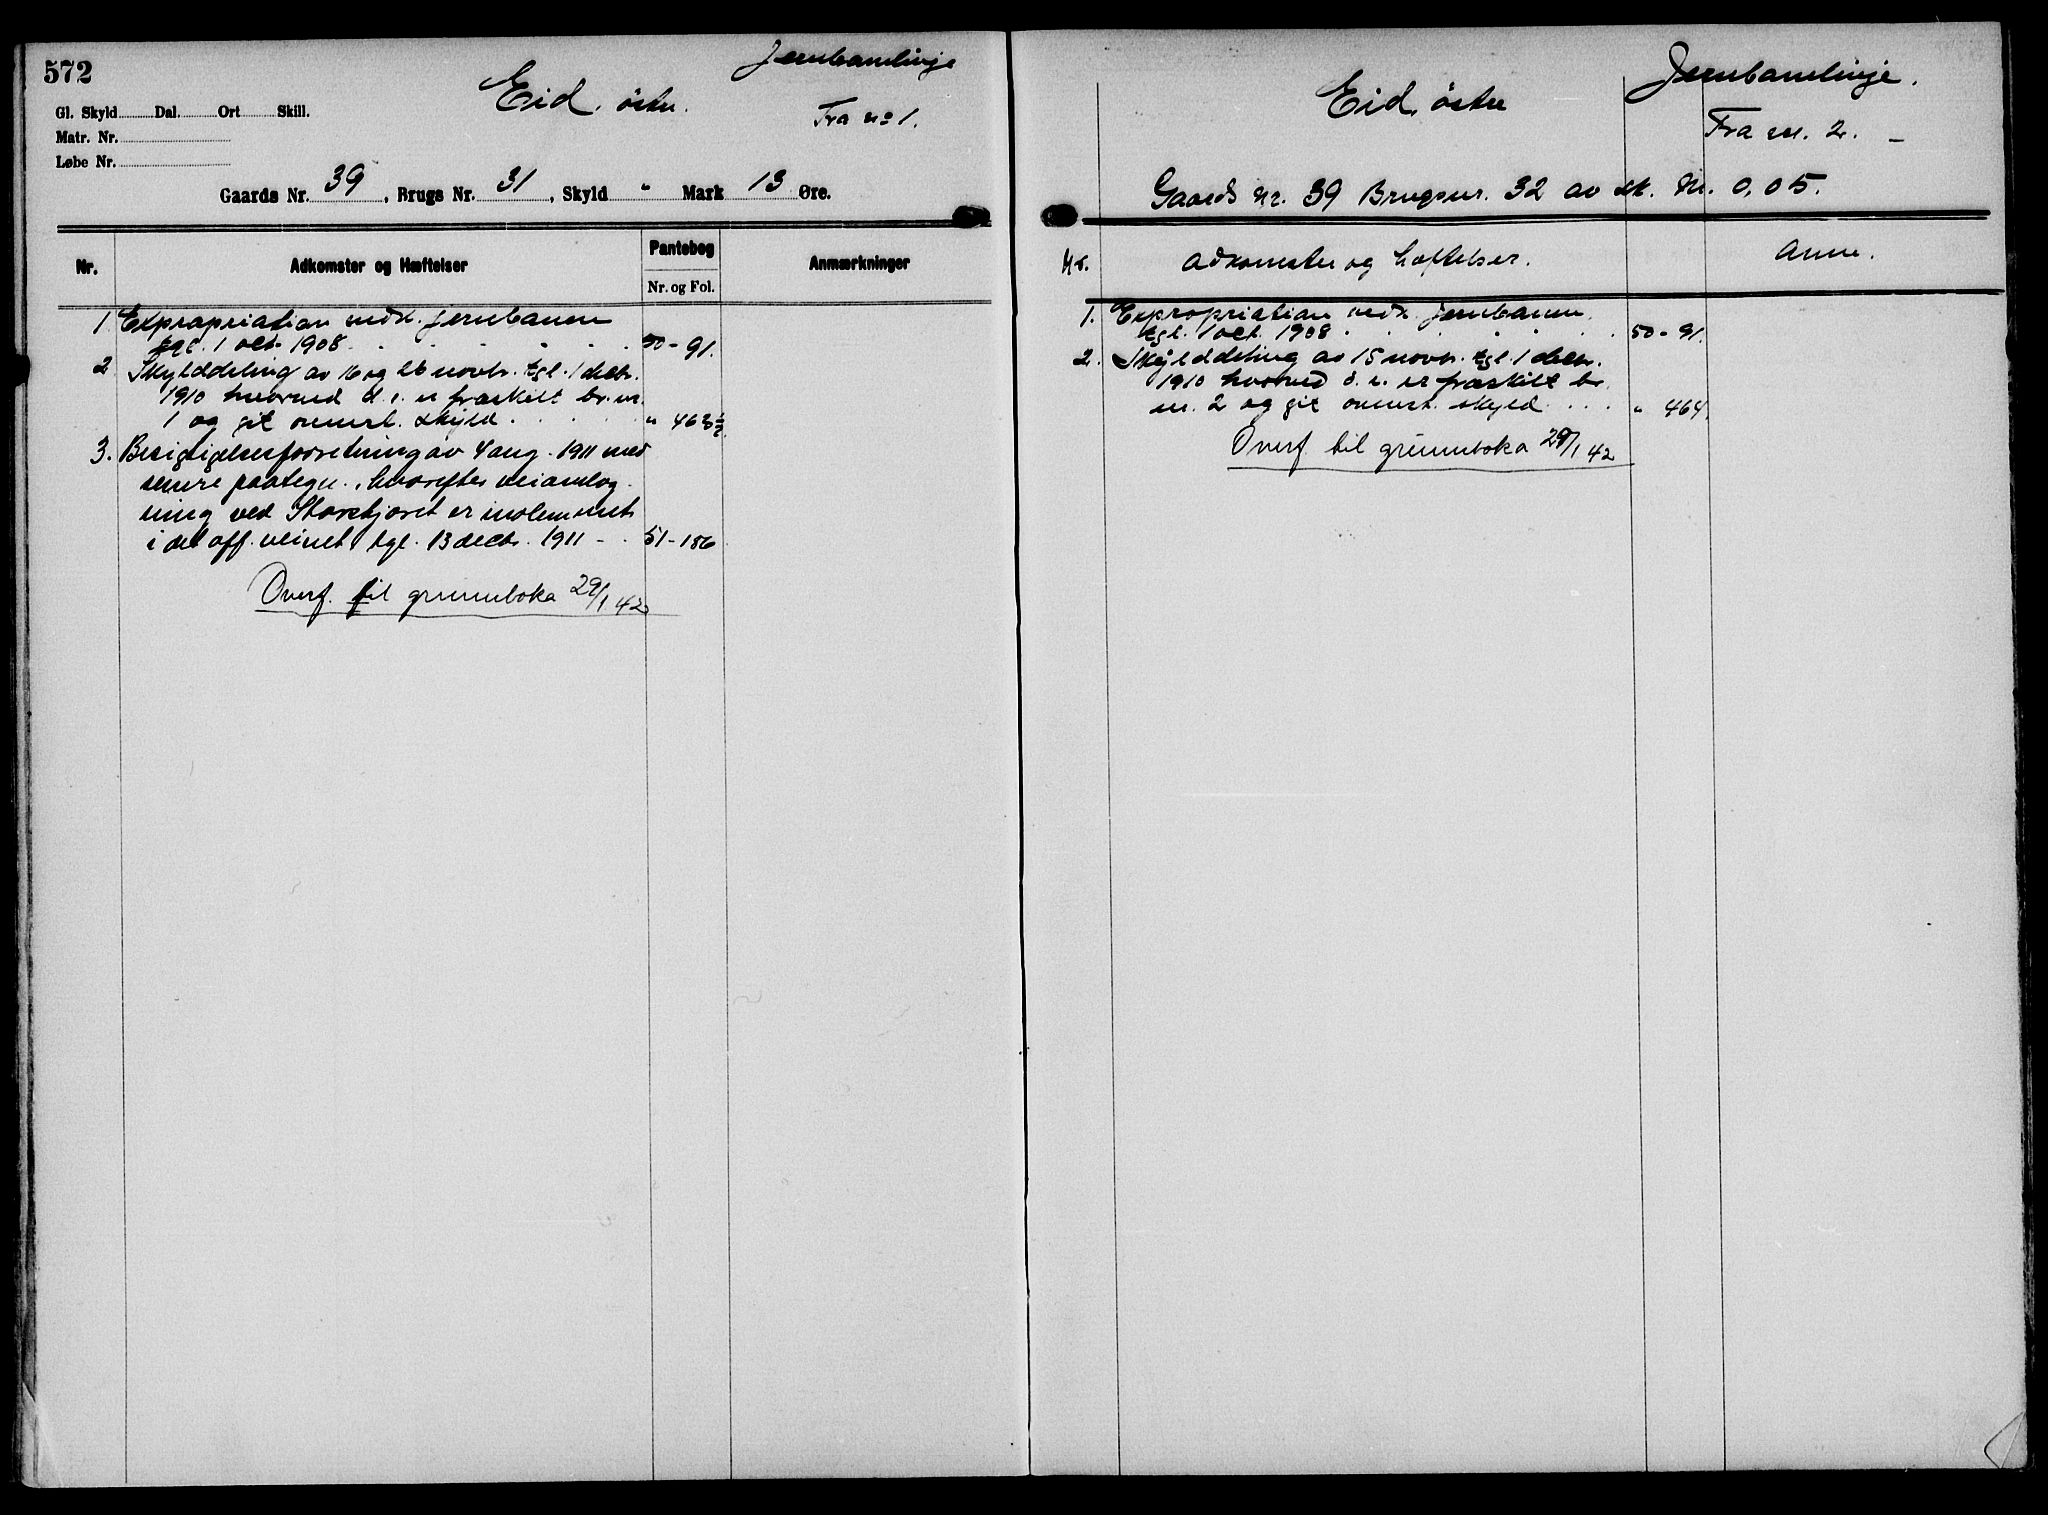 572
Gl. Skyld Dal. Ort Skill.
Matr. Nr.
Løbe Nr.
Eid, østre.
Jernbanelinje
Fra no 1.
Gaards Nr. 39, Brugs Nr. 31, Skyld " Mark 13 Øre.
Nr. Adkomster og Hæftelser Pantebog Nr. og Fol. Anmærkninger
1. Expropriation vedk. jernbanen
tgl. 1 oct. 1908 50 - 91.
2. Skylddeling av 16 og 26 novbr. tgl. 1 decbr.
1910 hvorved d. e. er fraskilt br. nr.
1 og git ovenst. skyld. " 463 1/2
3. Besigtigelsesforretning av 4 aug. 1911 med
senere paategn., hvorefter veiomlæg-
ning ved Storetjernet er indlemmet
i det off. veinet, tgl. 13 decbr. 1911 - 51-186
Overf. til grunnboka 29/1 42
Eid, østre
Jernbanelinje.
Fra nr. 2. -
Gaards Nr. 39 Brugsnr. 32 av sk. M. 0,05.
Nr. Adkomster og hæftelser. Anm.
1. Expropriation vedk. jernbanen
tgl. 1 oct. 1908 50 - 91.
2. Skylddeling av 15 novbr. tgl. 1 decbr.
1910 hvorved d. e. er fraskilt br.
nr. 2 og git ovenst. skyld. " 464.
Overf. til grunnboka 29/1 42